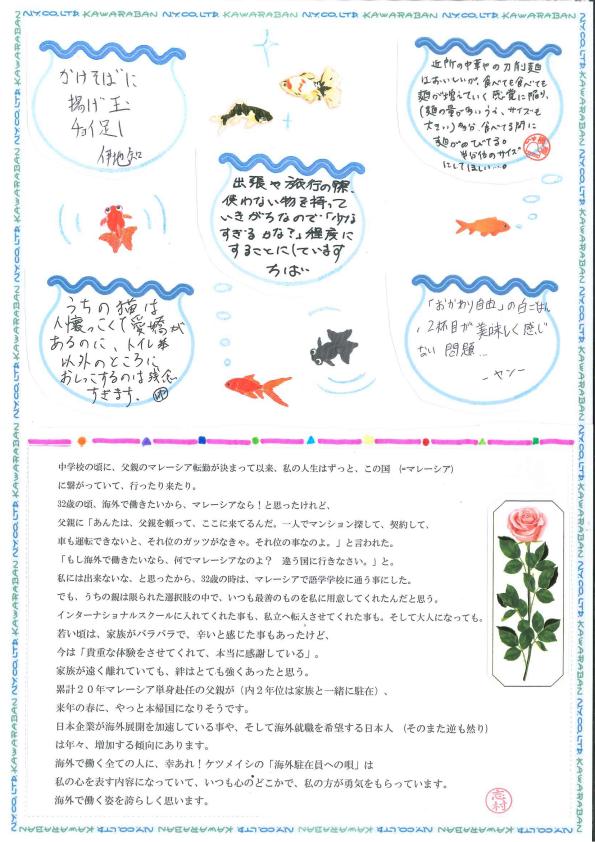 NY.CO.,LTD. KAWARABAN NY.CO.,LTD. KAWARABAN NY.CO.,LTD. KAWARABAN
かけそばに
揚げ玉
チョイ足し
伊地知
近所の中華やの刀削麺
はおいしいが、食べても食べても
麺が増えていく感覚に陥り、
(麺の量が多いうえ、サイズも
大きい)多分、食べてる間に
麺がのびてる。
半分位のサイズ
にしてほしい…。
出張や旅行の際、
使わない物を持って
いきがちなので「少な
すぎるかな?」程度に
することにしています
ちばい
うちの猫は
人懐っこくて愛嬌が
あるのに、トイレ
以外のところに
おしっこするのは残念
すぎます。
「おかわり自由」の白ごはん
、2杯目が美味しく感じ
ない問題…
-ヤン-
中学校の頃に、父親のマレーシア転勤が決まって以来、私の人生はずっと、この国 (=マレーシア)
に繋がっていて、行ったり来たり。
32歳の頃、海外で働きたいから、マレーシアなら!と思ったけれど、
父親に「あんたは、父親を頼って、ここに来てるんだ。一人でマンション探して、契約して、
車も運転できないと、それ位のガッツがなきゃ。それ位の事なのよ。」と言われた。
「もし海外で働きたいなら、何でマレーシアなのよ? 違う国に行きなさい。」と。
私には出来ないな、と思ったから、32歳の時は、マレーシアで語学学校に通う事にした。
でも、うちの親は限られた選択肢の中で、いつも最善のものを私に用意してくれたんだと思う。
インターナショナルスクールに入れてくれた事も、私立へ転入させてくれた事も。そして大人になっても。
若い頃は、家族がバラバラで、辛いと感じた事もあったけど、
今は「貴重な体験をさせてくれて、本当に感謝している」。
家族が遠く離れていても、絆はとても強くあったと思う。
累計20年マレーシア単身赴任の父親が(内2年位は家族と一緒に駐在)、
来年の春に、やっと本帰国になりそうです。
日本企業が海外展開を加速している事や、そして海外就職を希望する日本人 (そのまた逆も然り)
は年々、増加する傾向にあります。
海外で働く全ての人に、幸あれ!ケツメイシの「海外駐在員への唄」は
私の心を表す内容になっていて、いつも心のどこかで、私の方が勇気をもらっています。
海外で働く姿を誇らしく思います。
志村